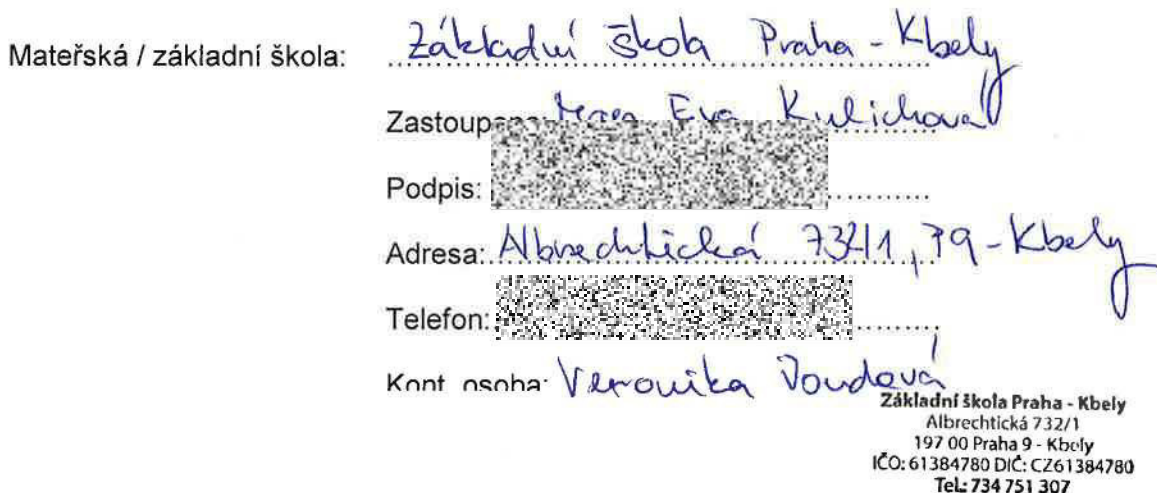 Mateřská / základní škola: Základní škola Praha - Kbely
Zastoupena: Eva Kulichová
Podpis:
Adresa: Albrechtická 732/1, P9 - Kbely
Telefon:
Kont. osoba: Veronika
Základní škola Praha - Kbely
Albrechtická 732/1
197 00 Praha 9 - Kbely
IČO: 61384780 DIČ: CZ61384780
Tel: 734 751 307